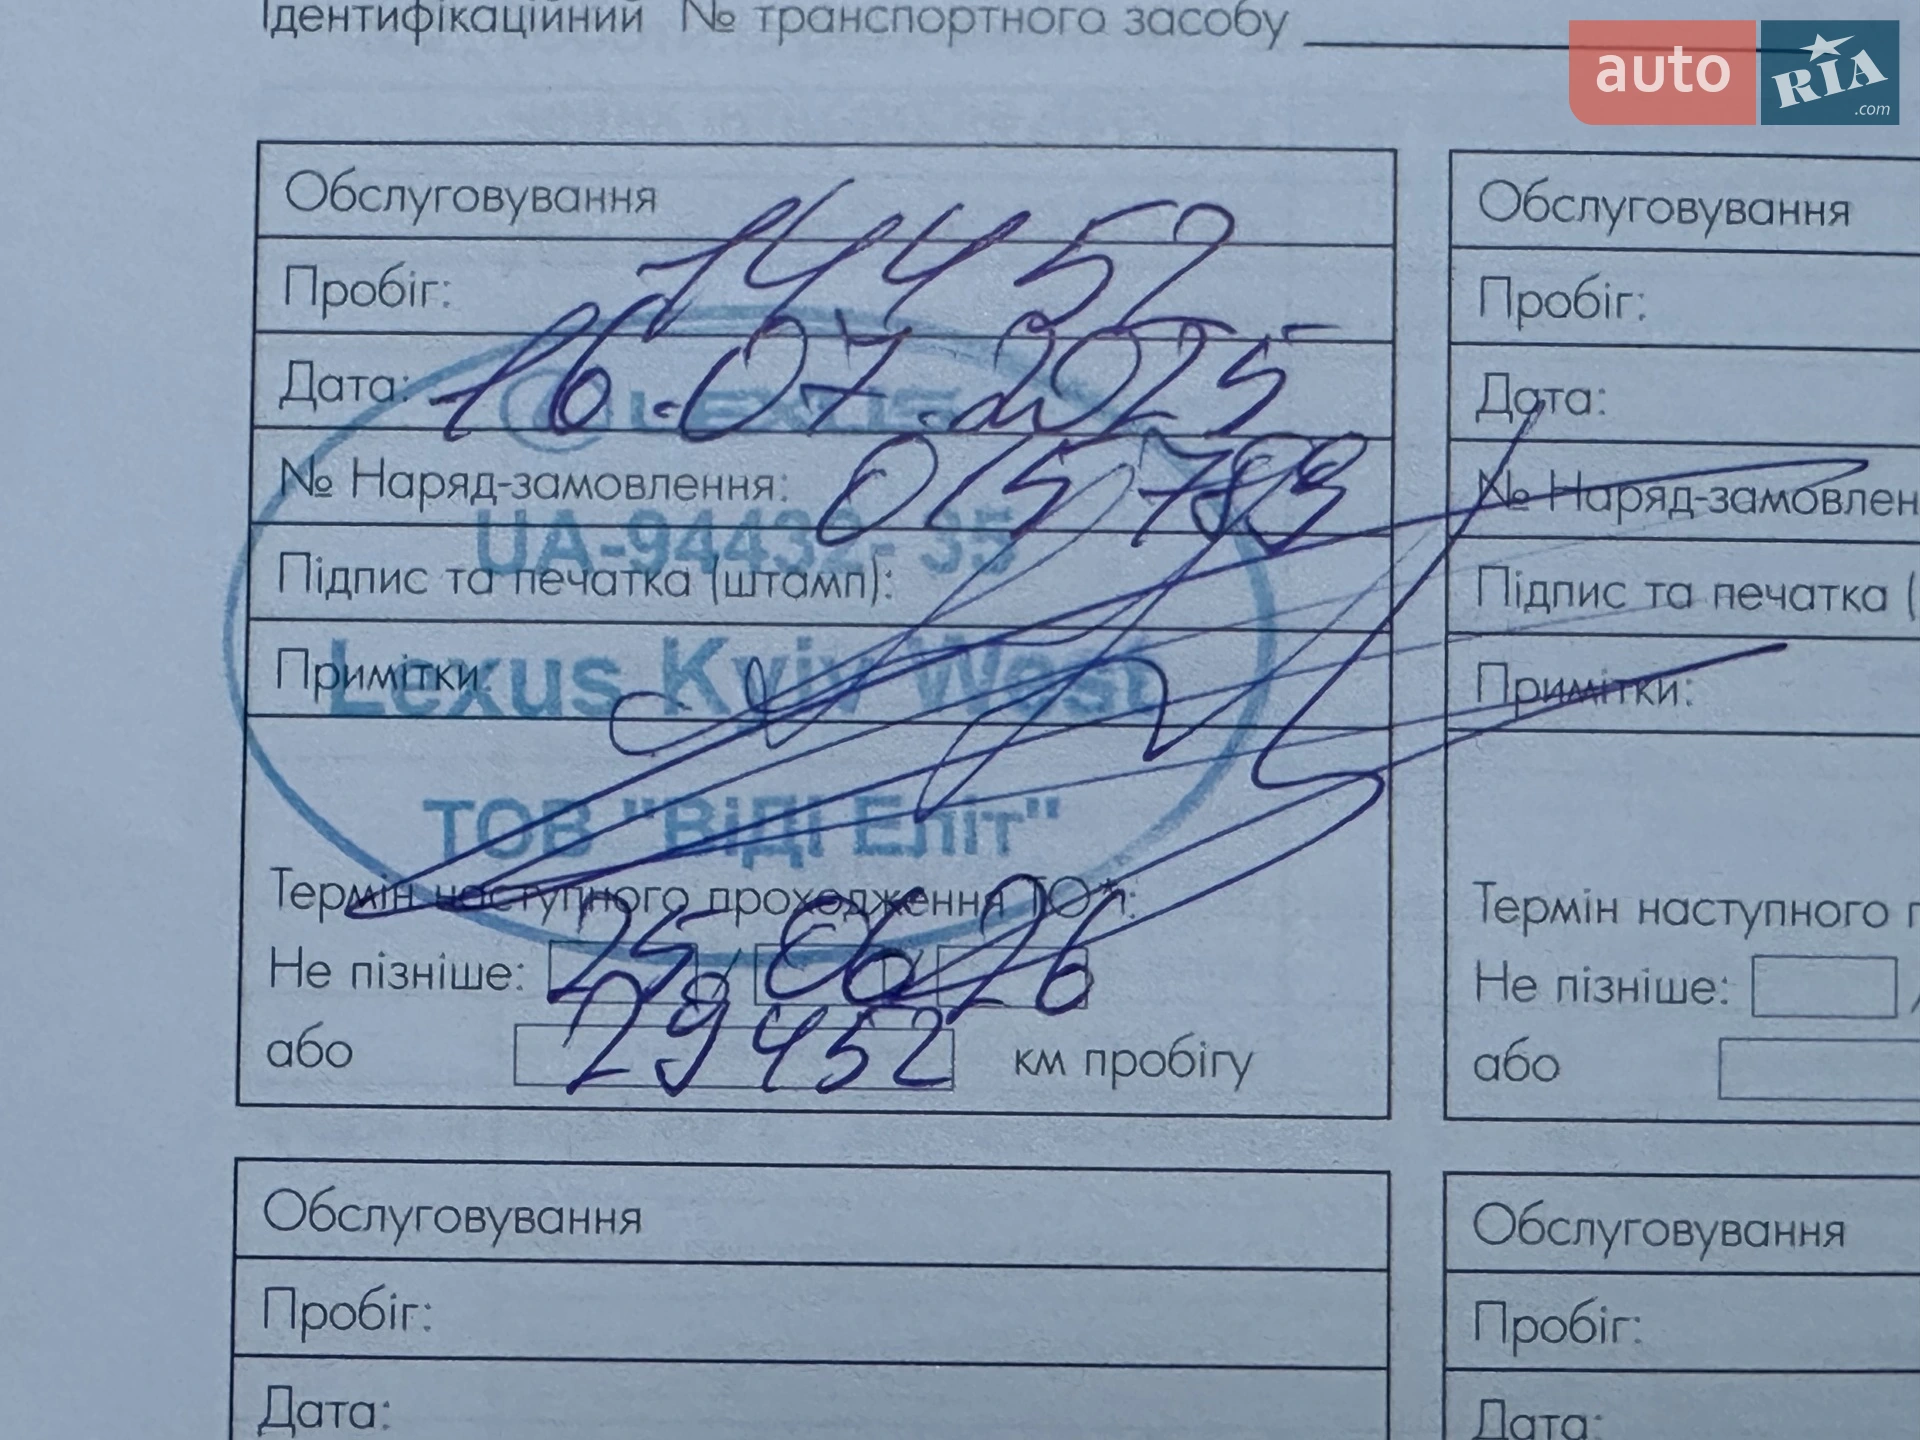 Ідентифікаційний № транспортного засобу
auto RIA .com
Обслуговування
Пробіг: 14452
Дата: 16.07.2025
LEXUS
№ Наряд-замовлення: 015789
UA-94432-35
Підпис та печатка (штамп):
Примітки:
Lexus Kyiv West
ТОВ "ВіДі Еліт"
Термін наступного проходження ТО*:
Не пізніше: 25 / 06 / 26
або 29452 км пробігу
Обслуговування
Пробіг:
Дата:
№ Наряд-замовлен
Підпис та печатка (
Примітки:
Термін наступного п
Не пізніше: /
або
Обслуговування
Пробіг:
Дата:
Обслуговування
Пробіг:
Дата: